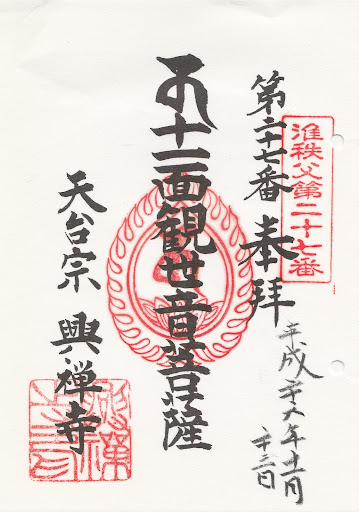 淮秩父第二十七番
第二十七番 奉拝
平成廿八年十一月
廿三日
十一面観世音菩薩
天台宗 興禅寺